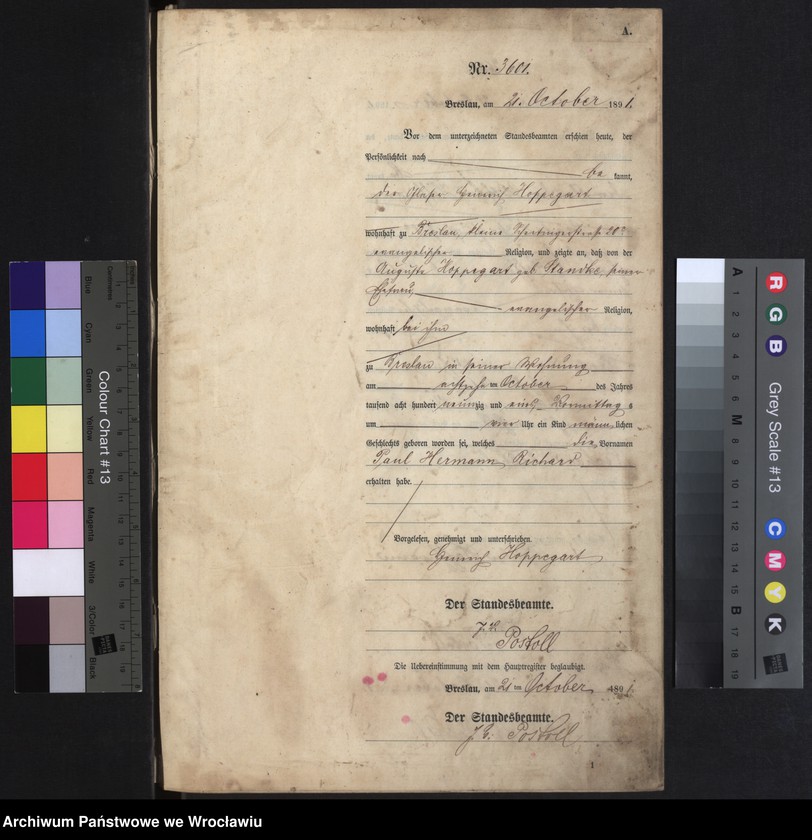 A.
Nr. 3601.
Breslau, am 21. October 1891.
Vor dem unterzeichneten Standesbeamten erschien heute, der
Persönlichkeit nach
be kannt,
der Glaser Heinrich Hoppegart
wohnhaft zu Breslau, kleine
evangelischer Religion, und zeigte an, daß von der
Auguste Hoppegart geb Standke, seiner
Ehefrau,
evangelischer Religion,
wohnhaft bei ihm
zu Breslau in seiner Wohnung
am achtzehn ten October des Jahres
tausend acht hundert neunzig und eins Vormittag s
um vier Uhr ein Kind männ lichen
Geschlechts geboren worden sei, welches die Vornamen
Paul Hermann Richard
erhalten habe.
Vorgelesen, genehmigt und unterschrieben.
Heinrich Hoppegart
Der Standesbeamte.
Postoll
Die Uebereinstimmung mit dem Hauptregister beglaubigt.
Breslau, am 21 ten October 1891.
Der Standesbeamte.
Postoll
1
Colour Chart #13
Blue
Cyan
Green
Yellow
Red
Magenta
White
3/Color
Black
Centimetres
Inches
Grey Scale #13
R
G
B
C
M
Y
K
A
1
2
3
4
5
6
M
8
9
10
11
12
13
14
15
B
17
18
19
Archiwum Państwowe we Wrocławiu